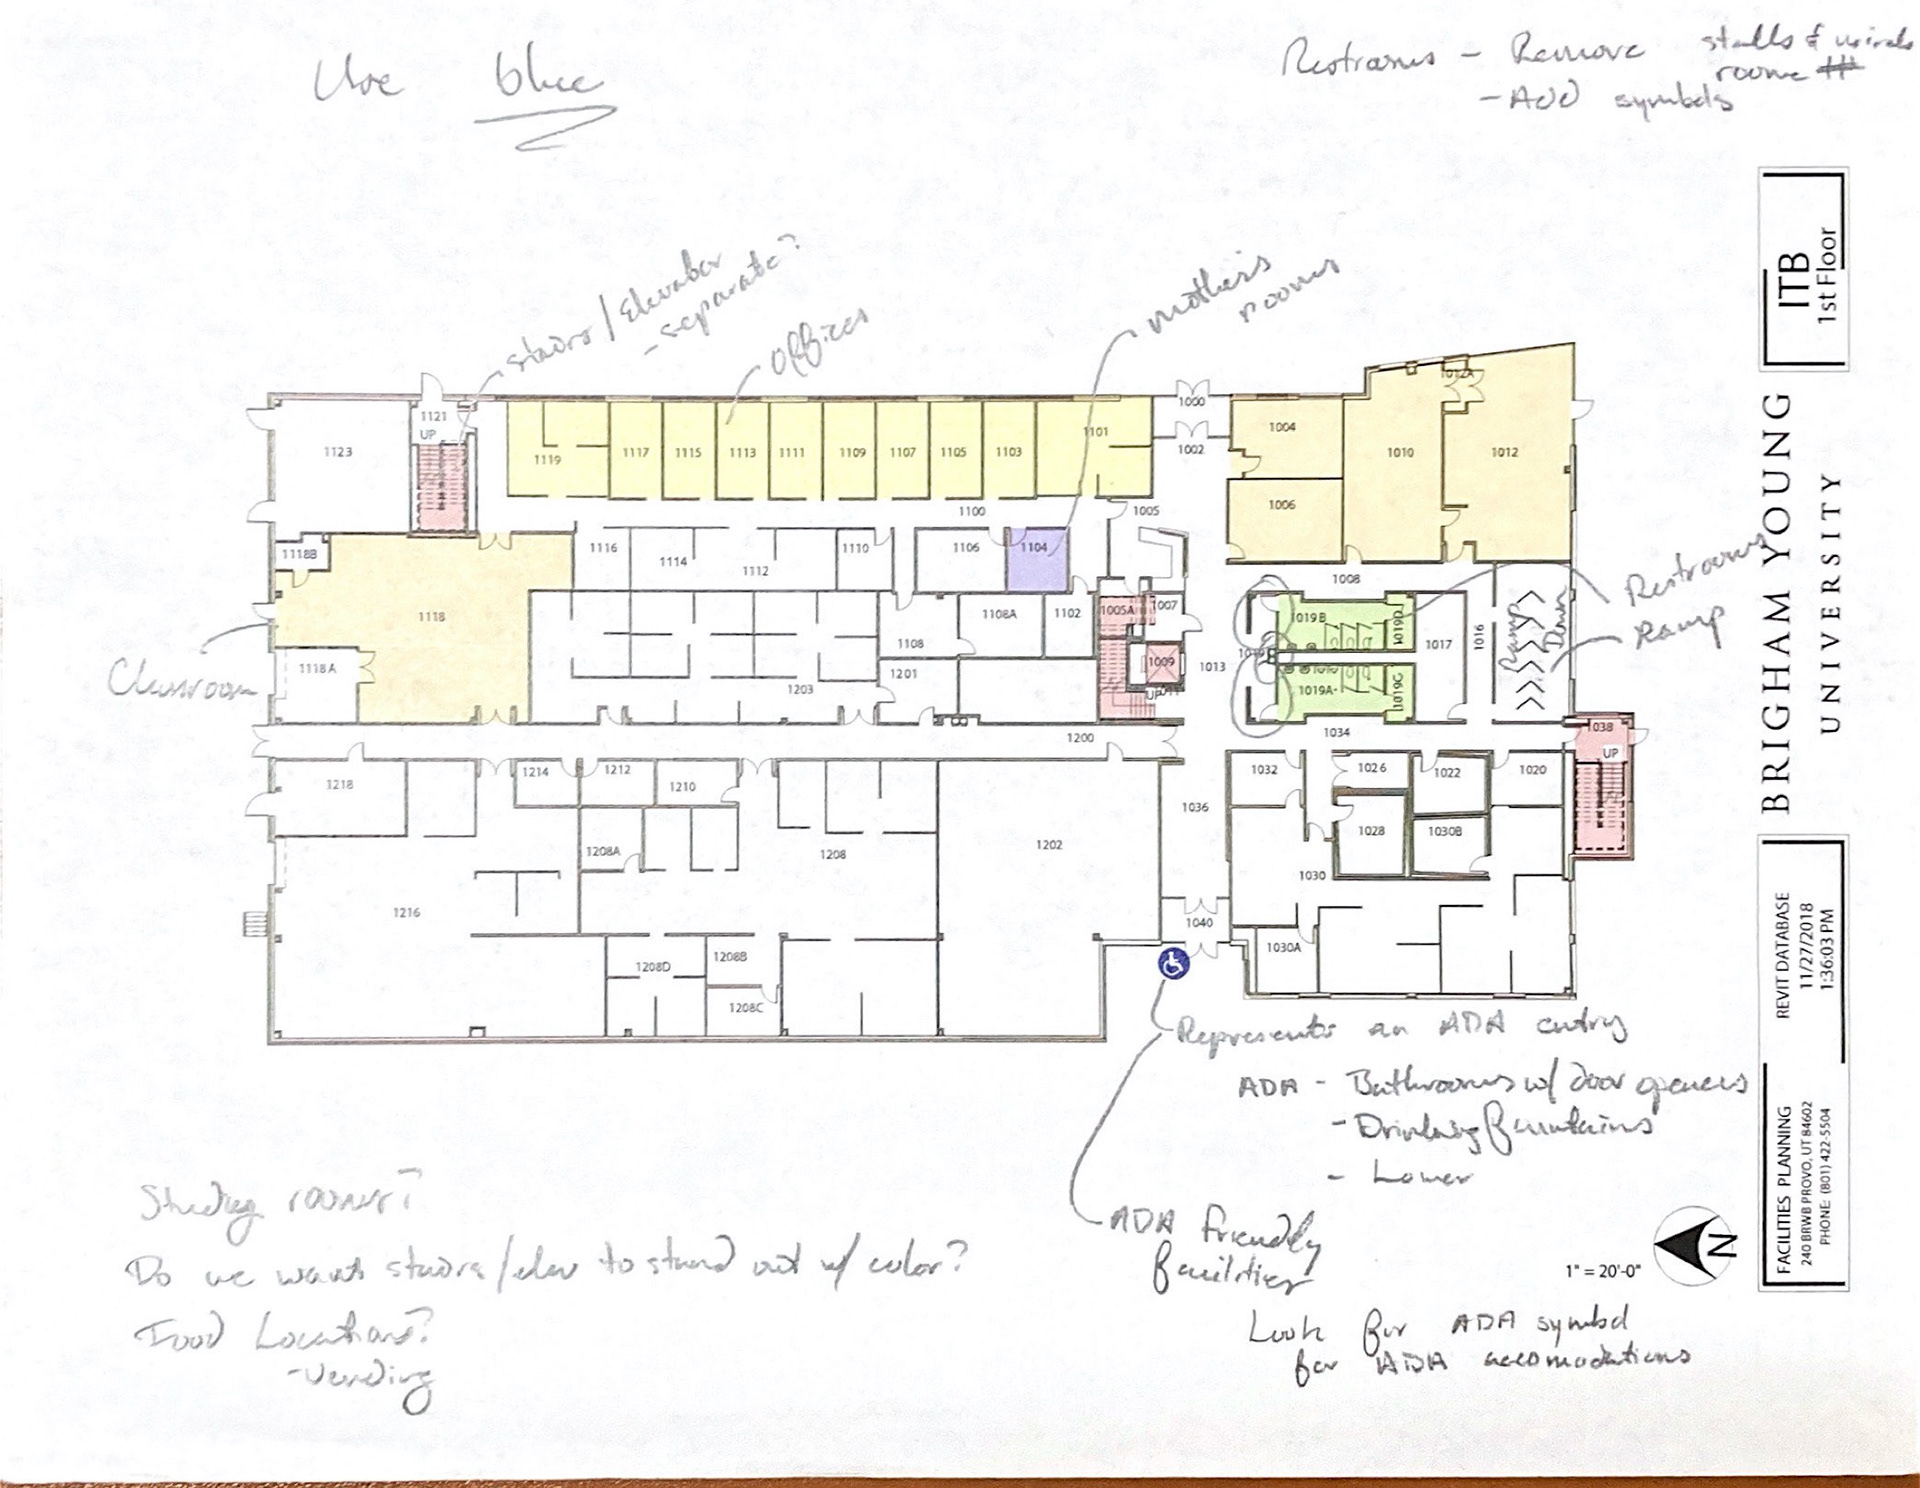 Use blue
Restrooms - Remove stalls & urinals
room #
- ADD symbols
ITB
1st Floor
stairs/Elevator
- separate?
offices
mother's
rooms
1012A
1121
UP
1123
1119
1117
1115
1113
1111
1109
1107
1105
1103
1101
1000
1002
1004
1010
1012
1100
1005
1006
1118B
1116
1114
1112
1110
1106
1104
1008
BRIGHAM YOUNG
UNIVERSITY
Restrooms
Ramp
1118
1108A
1102
1005A
1007
1019B
1019D
1017
1016
Ramp
Down
1108
1118A
1203
1201
1009
UP
1013
1019A
1019C
Classroom
1200
1034
1038
UP
1218
1214
1212
1210
1032
1026
1022
1020
1036
1208A
1208
1202
1028
1030B
1030
1216
1040
1208D
1208B
1030A
1208C
REVIT DATABASE
11/27/2018
1:36:03 PM
Represents an ADA entry
ADA - Bathrooms w/ door openers
- Drinking fountains
- Lower
ADA friendly
facilities
Look for ADA symbol
for ADA accomodations
Studey rooms?
Do we want stairs/elev to stand out w/ color?
Food Locations?
- Vending
1" = 20'-0"
N
FACILITIES PLANNING
240 BRWB PROVO, UT 84602
PHONE: (801) 422-5504